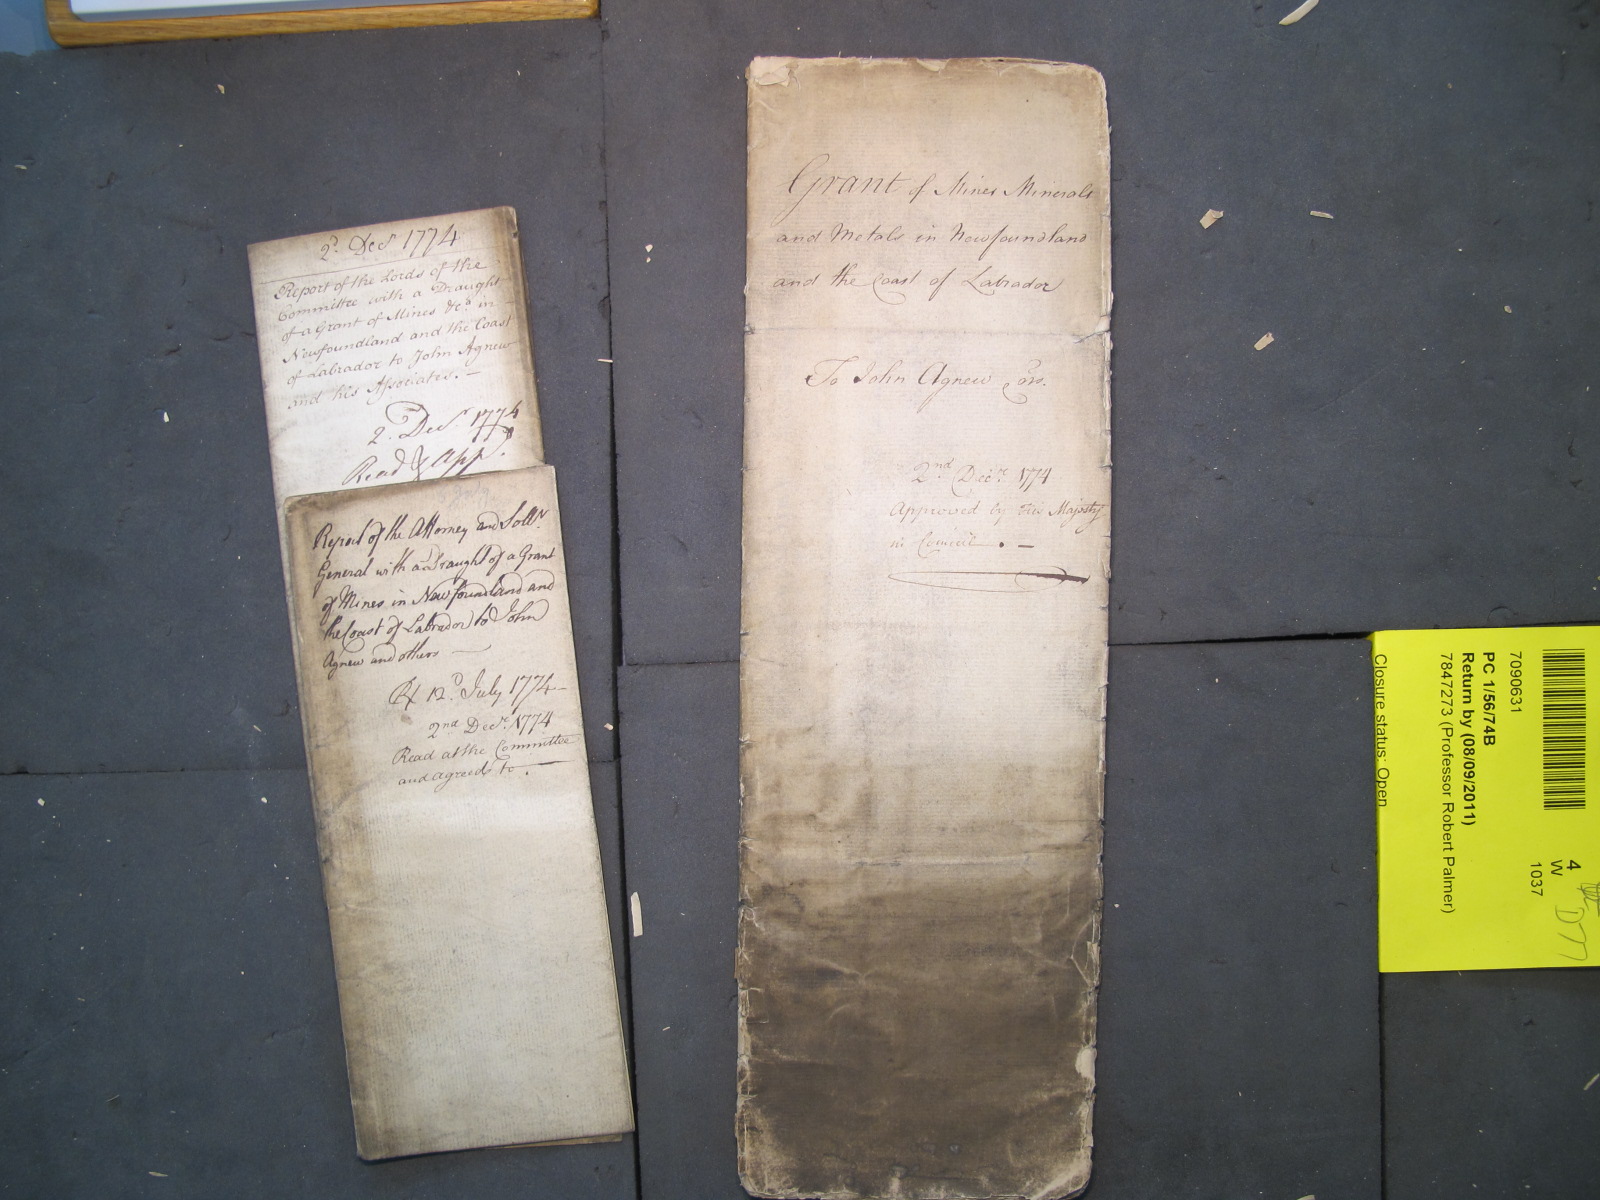 2d. Decr 1774
Report of the Lords of the
Committee with a Draught
of a Grant of Mines &ca. in
Newfoundland and the Coast
of Labrador to John Agnew
and his Associates. —
2d. Decr. 1774
Read & App.
Report of the Attorney and Sollr.
General with a Draught of a Grant
of Mines in Newfoundland and
the Coast of Labrador to John
Agnew and others —
Rx 12o. July 1774 —
2nd Decr. 1774
Read at the Committee
and agreed to. —
Grant of Mines Minerals
and Metals in Newfoundland
and the Coast of Labrador
To John Agnew
2nd Decr. 1774
Approved by His Majesty
in Council. —
7090631
PC 1/56/74B
Return by (08/09/2011)
7847273 (Professor Robert Palmer)
Closure status: Open
4
W
1037
D77